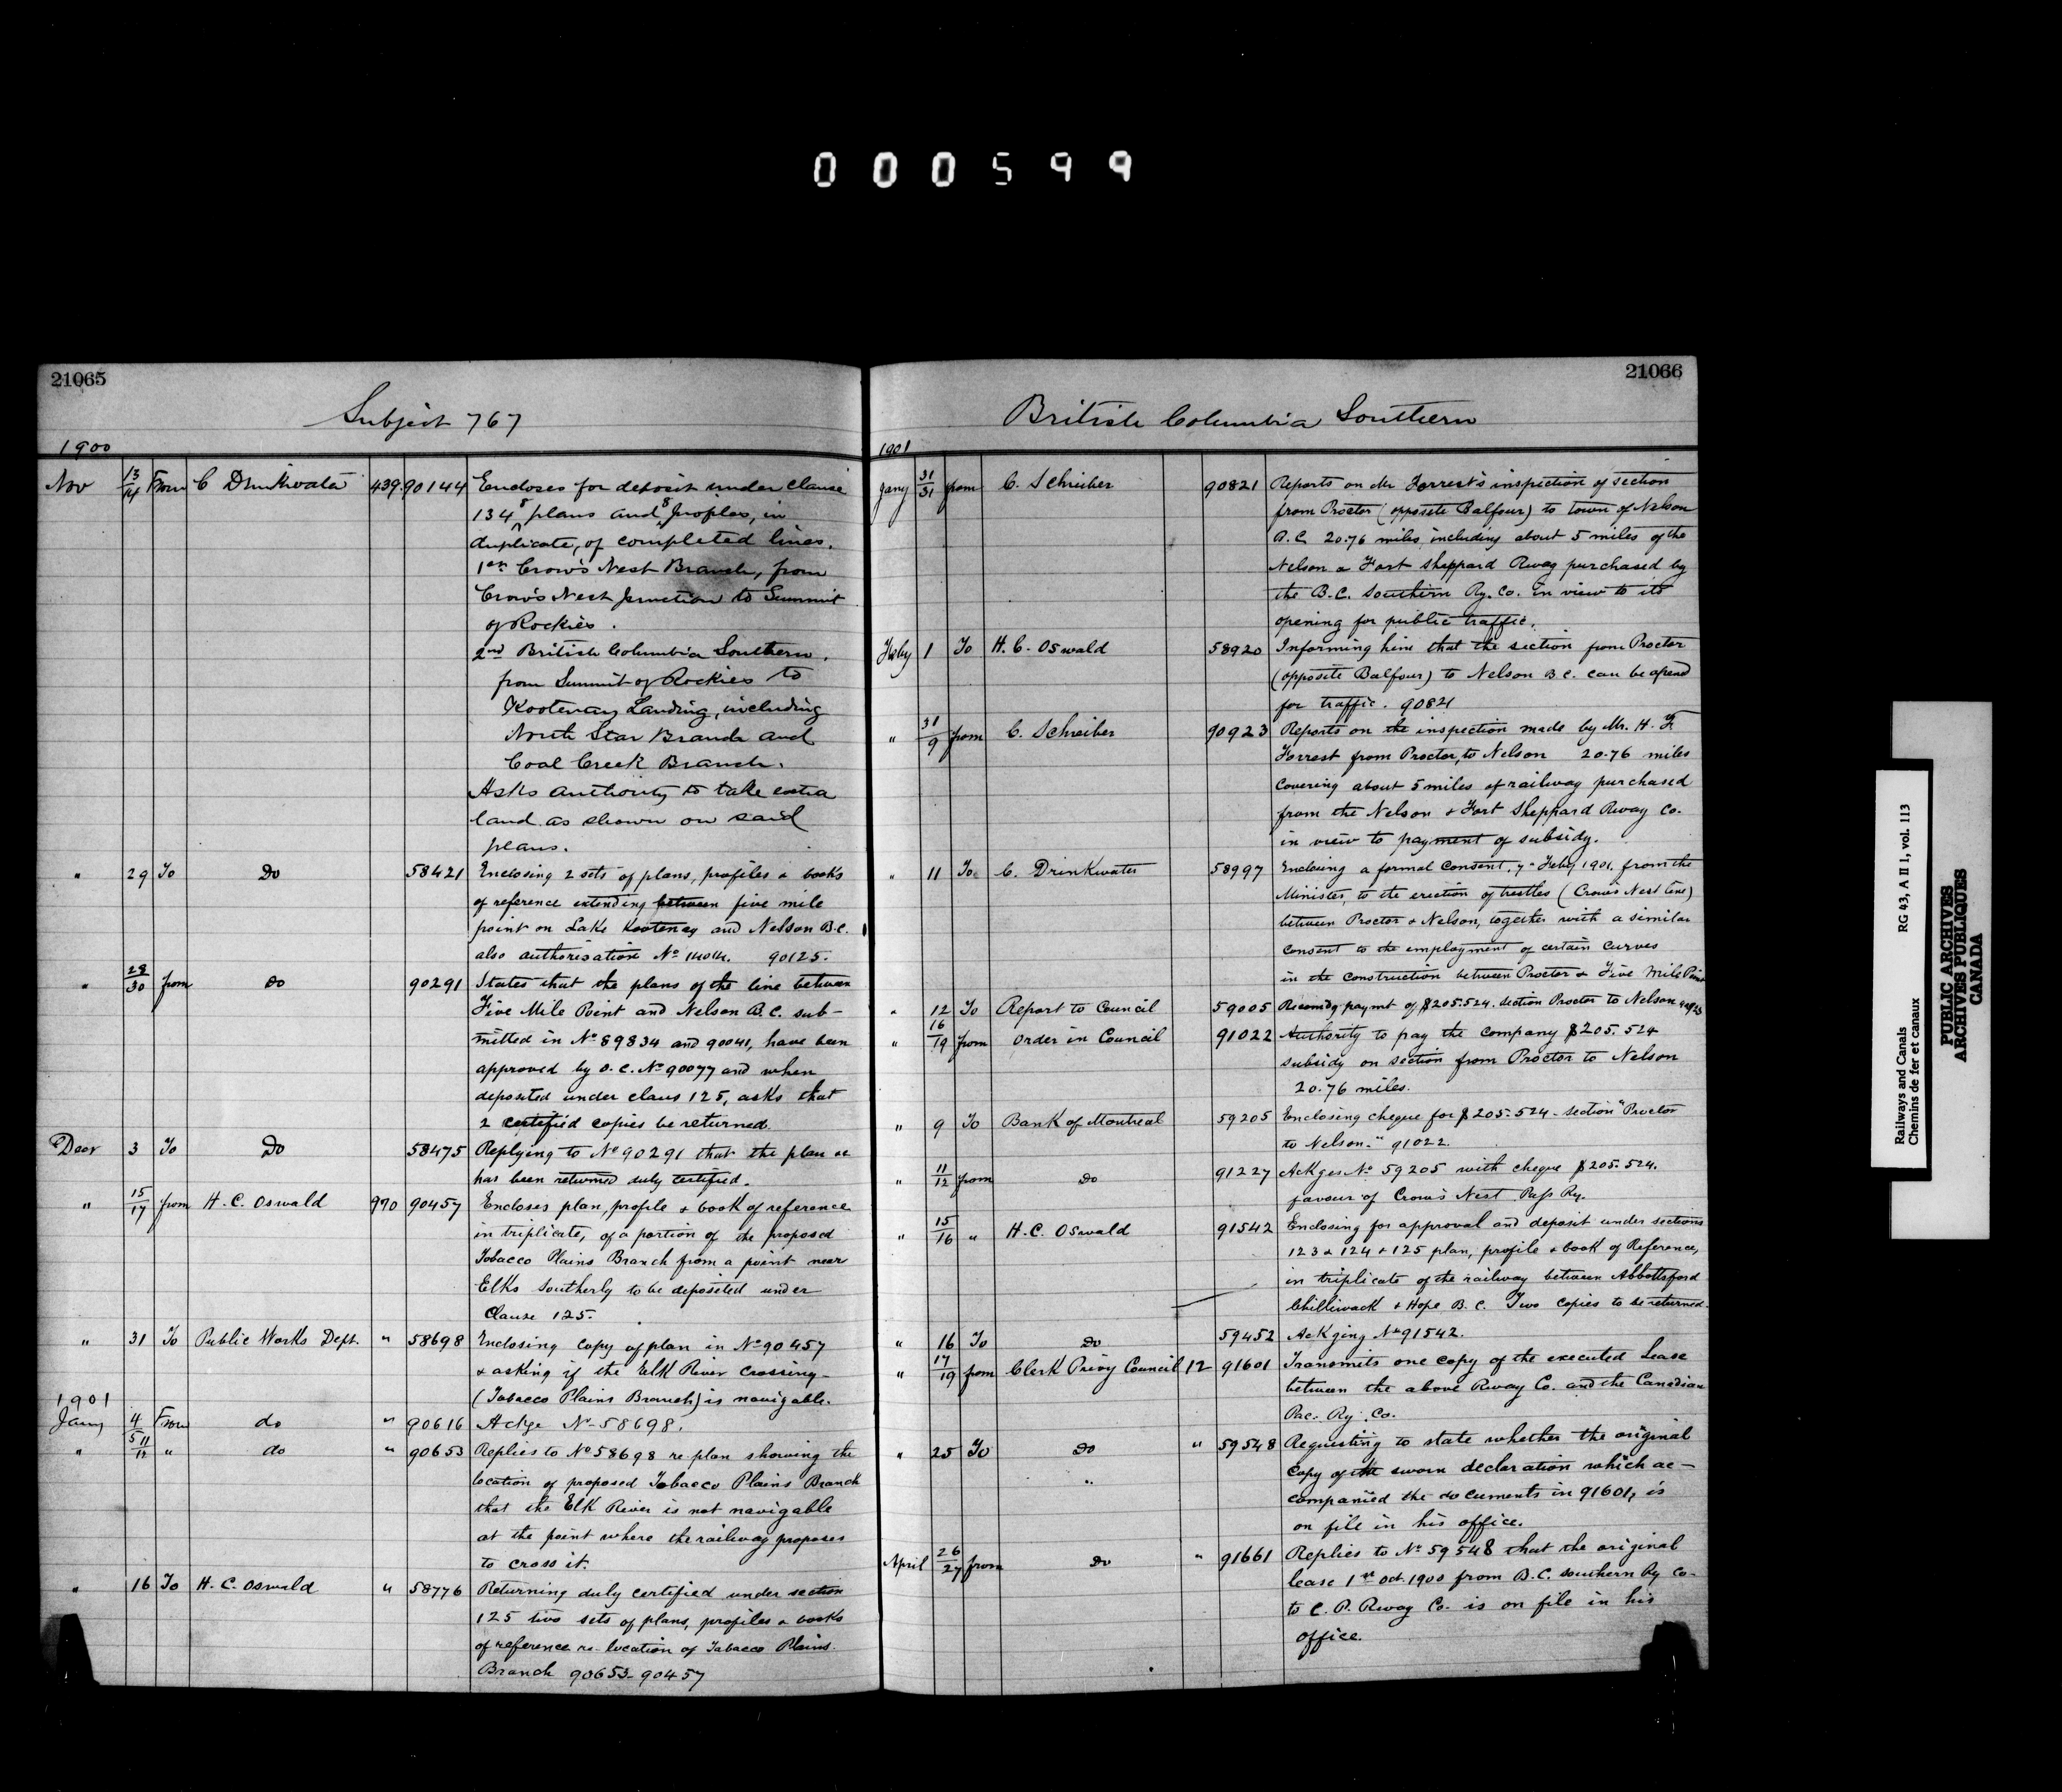 000599
21065
Subject 767
1900
Nov 13/14 From C Drinkwater 439. 90144 Encloses for deposit under clause
134 8 plans and 8 profiles, in
duplicate, of completed lines.
1st Crow's Nest Branch, from
Crow's Nest Junction to Summit
of Rockies.
2nd British Columbia Southern,
from Summit of Rockies to
Kootenay Landing, including
North Star Branch and
Coal Creek Branch.
Asks authority to take extra
land as shown on said
plans.
" 29 To Do 58421 Enclosing 2 sets of plans, profiles & books
of reference extending between five mile
point on Lake Kootenay and Nelson B.C.
also authorisation No 90125.
" 28/30 from do 90291 States that the plans of the line between
Five Mile Point and Nelson B.C. sub-
mitted in No 89834 and 90041, have been
approved by O.C. No 90077 and when
deposited under claus 125, asks that
2 certified copies be returned.
Decr 3 To Do 58475 Replying to No 90291 that the plan &c
has been returned duly certified.
" 15/17 from H. C. Oswald 990 90457 Encloses plan, profile & book of reference
in triplicate, of a portion of the proposed
Tobacco Plains Branch from a point near
Elko Southerly to be deposited under
Clause 125.
" 31 To Public Works Dept. " 58698 Enclosing copy of plan in No 90457
& asking if the Elk River crossing-
(Tobacco Plains Branch) is navigable.
1901
Jany 4/5 From do " 90616 Ackge No 58698.
" 11/12 " do " 90653 Replies to No 58698 re plan showing the
location of proposed Tobacco Plains Branch
that the Elk River is not navigable
at the point where the railway proposes
to cross it.
" 16 To H. C. Oswald " 58776 Returning duly certified under section
125 two sets of plans, profiles & books
of reference re location of Tobacco Plains
Branch 90653-90457
21066
British Columbia Southern
1901
Jany 31/31 from C. Schreiber 90821 Reports on Mr Forrest's inspection of section
from Proctor (opposite Balfour) to town of Nelson
B.C. 20.76 miles, including about 5 miles of the
Nelson & Fort Sheppard Rway purchased by
the B.C. Southern Ry. Co. in view to its
opening for public traffic.
Feby 1 To H. C. Oswald 58920 Informing him that the section from Proctor
(opposite Balfour) to Nelson B.C. can be opend
for traffic. 90821
" 31/9 from C. Schreiber 90923 Reports on the inspection made by Mr. H. F.
Forrest from Proctor, to Nelson 20.76 miles
covering about 5 miles of railway purchased
from the Nelson & Fort Sheppard Rway Co.
in view to payment of subsidy.
" 11 To C. Drinkwater 58997 Enclosing a formal consent, 7th Feby 1901, from the
Minister, to the erection of trestles (Crow's Nest line)
between Proctor & Nelson, together with a similar
consent to the employment of certain curves
in the construction between Proctor & Five Mile Point
" 12 To Report to Council 59005 Recomdg paymt of $205.524. section Proctor to Nelson 90923
" 16/19 from Order in Council 91022 Authority to pay the company $205.524
subsidy on section from Proctor to Nelson
20.76 miles.
" 9 To Bank of Montreal 59205 Enclosing cheque for $205.524 - section "Proctor
to Nelson." 91022.
" 11/12 from Do 91227 Ackges No 59205 with cheque $205.524.
favour of Crow's Nest Pass Ry.
" 15/16 " H. C. Oswald 91542 Enclosing for approval and deposit under sections
123 & 124 & 125 plan, profile & book of Reference,
in triplicate of the railway between Abbottsford
Chilliwack & Hope B.C. Two copies to be returned.
" 16 To Do 59452 Ackging No 91542.
" 17/19 from Clerk Privy Council 12 91601 Transmits one copy of the executed Lease
between the above Rway Co. and the Canadian
Pac. Ry. Co.
" 25 To Do " 59548 Requesting to state whether the original
copy of the sworn declaration which ac-
companied the documents in 91601, is
on file in his office.
April 26/27 from Do " 91661 Replies to No 59548 that the original
lease 1st Oct. 1900 from B.C. Southern Ry Co-
to C. P. Rway Co. is on file in his
office.
Railways and Canals RG 43, A II 1, vol. 113
Chemins de fer et canaux
PUBLIC ARCHIVES
ARCHIVES PUBLIQUES
CANADA